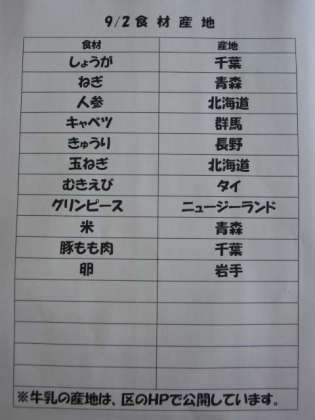 9/2食材産地
食材 産地
しょうが 千葉
ねぎ 青森
人参 北海道
キャベツ 群馬
きゅうり 長野
玉ねぎ 北海道
むきえび タイ
グリンピース ニュージーランド
米 青森
豚もも肉 千葉
卵 岩手
※牛乳の産地は、区のHPで公開しています。